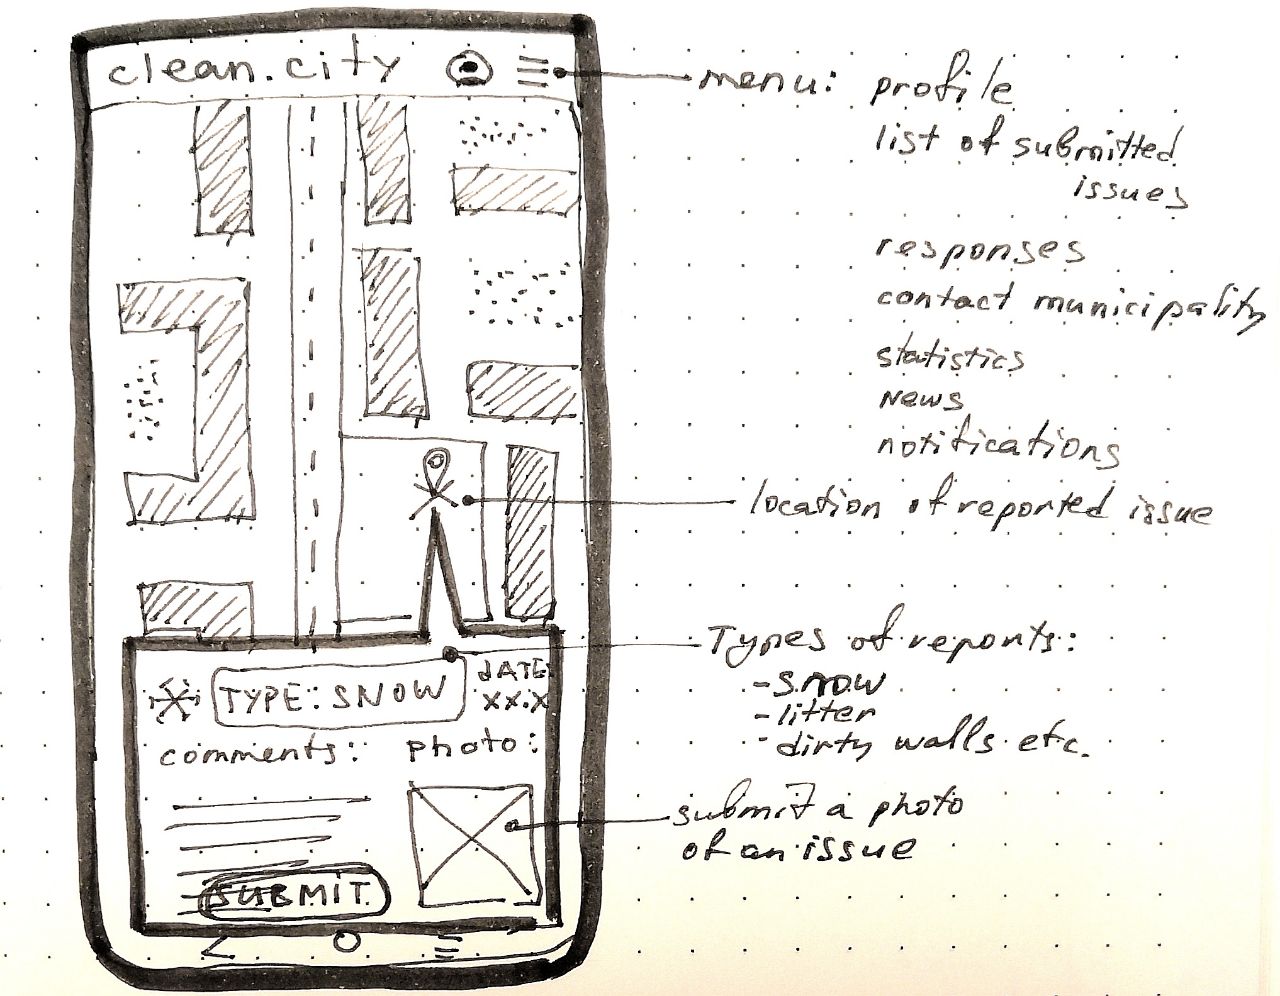 clean.city
menu: profile
list of submitted
issues
responses
contact municipality
statistics
News
notifications
location of reported issue
Types of reports:
- snow
- litter
- dirty walls etc.
TYPE: SNOW
dATE:
xx.x
comments:
photo:
submit a photo
of an issue
SUBMIT